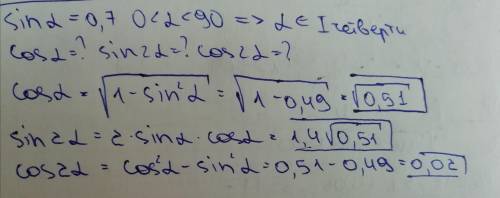 sinα = 0,7 0<α<90 => α ∈ I четверти
cosα=? sin2α=? cos2α=?
cosα = √(1-sin²α) = √(1-0,49) = √0,51
sin2α = 2·sinα·cosα = 1,4√0,51
cos2α = cos²α-sin²α = 0,51-0,49 = 0,02